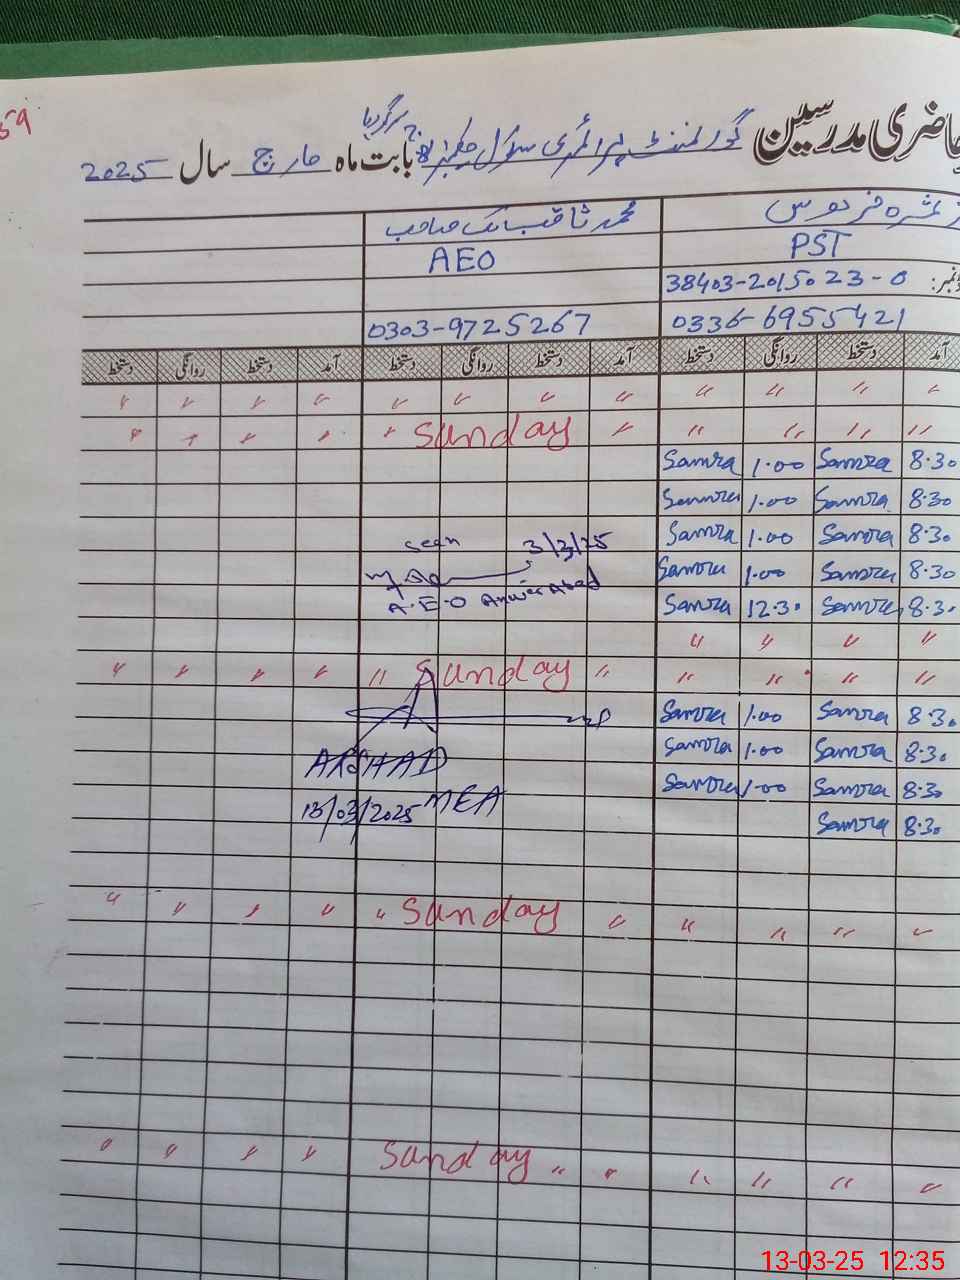 59
حاضری مدرسین گورنمنٹ پرائمری سکول چک نمبر بابت ماہ مارچ سال 2025
سرگودہا
فردوس محمد ثاقب ملک صاحب
PST AEO
نمبر: 38403-2015023-0
0336-6955421 0303-9725267
آمد دستخط روانگی دستخط آمد دستخط روانگی دستخط آمد دستخط روانگی دستخط
" " " " " " " " " " " "
" " " " " Sunday " " " " "
8.30 Samra 1.00 Samra
8.30 Samra 1.00 Samra
8.30 Samra 1.00 Samra Seen 3/3/25
8.30 Samra 1.00 Samra
8.30 Samra 12.30 Samra A.E.O
" " " "
" " " " " Sunday " " " " "
8.30 Samra 1.00 Samra
8.30 Samra 1.00 Samra ARSHAD
8.30 Samra 1.00 Samra 13/03/2025 MEA
8.30 Samra
" " " " " Sunday " " " " "
" " " " " " Sunday " " " "
13-03-25 12:35